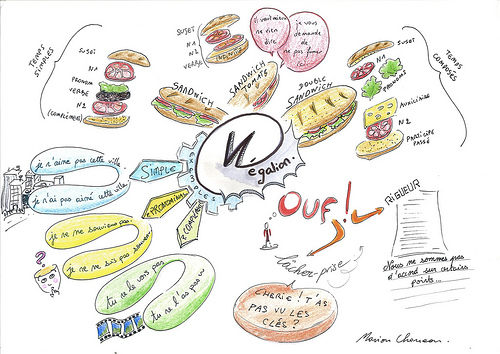 TEMPS
SIMPLES
SUJET
N1
PRONOM
VERBE
N2
(COMPLÉMENT)
SUJET
N1
N2
VERBE
INFINITIF
il vaut mieux
ne rien
dire
je vous
demande
de
ne pas fumer
ici
SANDWICH
SANDWICH
TOMATE
DOUBLE
SANDWICH
SUJET
N1
PRONOMS
AUXILIAIRE
N2
PARTICIPE
PASSÉ
TEMPS
COMPOSÉS
Négation
EXEMPLES
SIMPLE
+ PRONOMINAL
+ COMPLÉMENT
je n'aime pas cette ville
je n'ai pas aimé cette ville
je ne me souviens pas
je ne me suis pas souvenu
tu ne le vois pas
tu ne l'as pas vu
?
OUF!
lâcher-prise
CHERIE! T'AS
PAS VU LES
CLÉS?
RIGUEUR
Nous ne sommes pas
d'accord sur certains
points...
Marion Charreau.